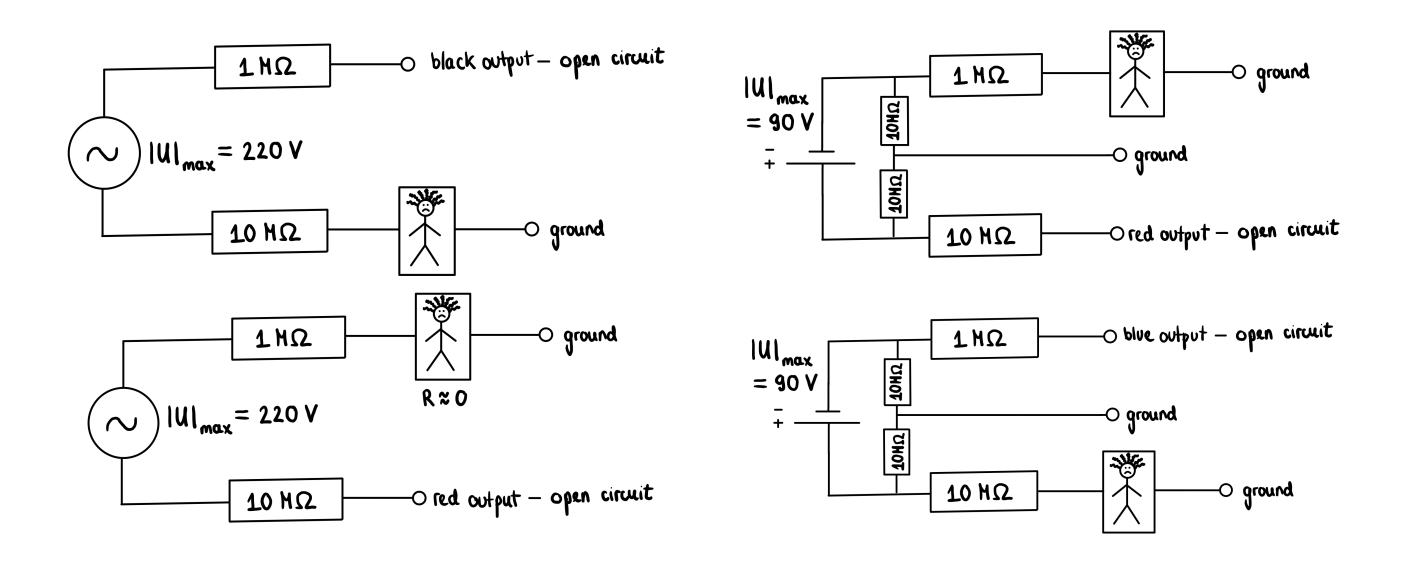 1 MΩ
black output – open circuit
|U|max = 220 V
10 MΩ
ground
1 MΩ
ground
R ≈ 0
|U|max = 220 V
10 MΩ
red output – open circuit
|U|max
= 90 V
–
+
10MΩ
10MΩ
1 MΩ
ground
ground
10 MΩ
red output – open circuit
|U|max
= 90 V
–
+
10MΩ
10MΩ
1 MΩ
blue output – open circuit
ground
10 MΩ
ground